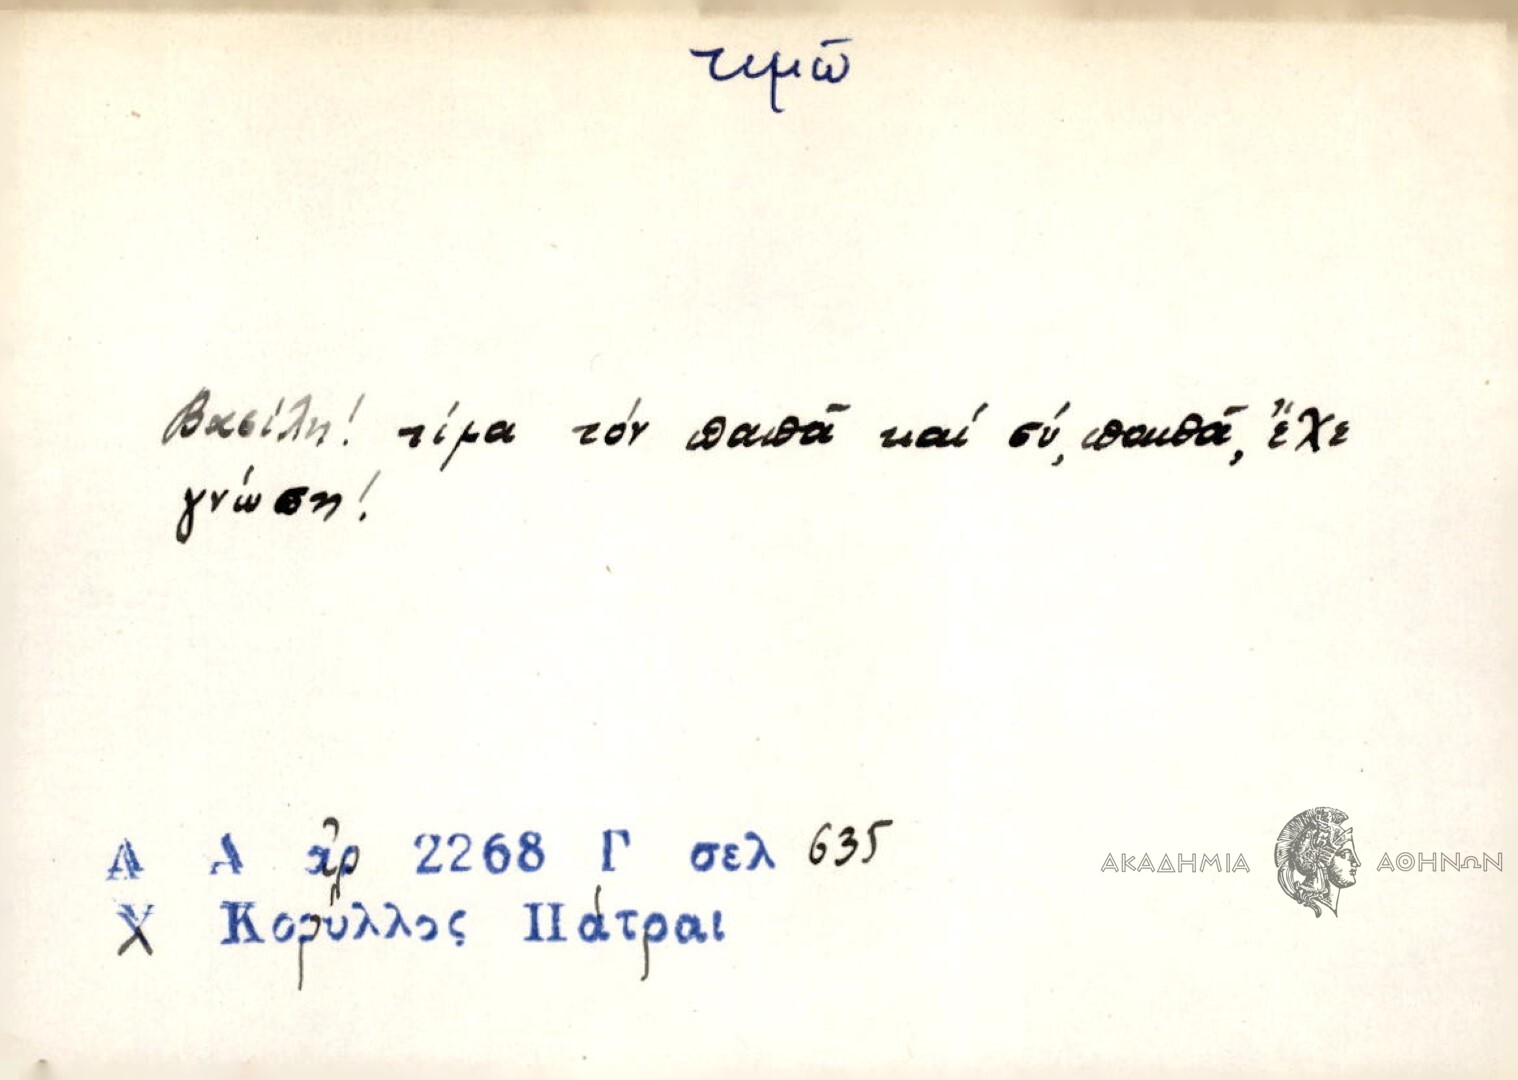 τιμῶ
Βασίλη! τίμα τόν παπᾶ καί σύ, παπᾶ, ἔχε
γνώση!
Λ Α ἀρ 2268 Γ σελ 635
Χ Κορύλλος Πάτραι
ΑΚΑΔΗΜΙΑ ΑΘΗΝΩΝ